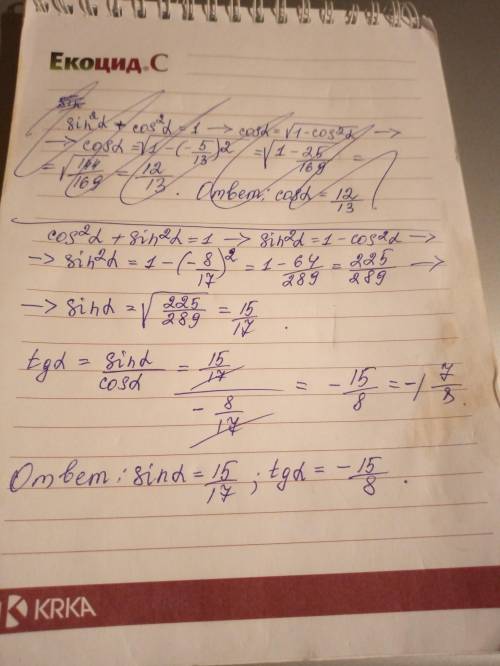 Екоцид.С
sin
sin²α + cos²α = 1 → cosα = √1-cos²α →
→ cosα = √1-(-5/13)² = √1-25/169 =
= √144/169 = 12/13. Ответ: cosα = 12/13.
cos²α + sin²α = 1 → sin²α = 1 - cos²α →
→ sin²α = 1 - (-8/17)² = 1 - 64/289 = 225/289 →
→ sinα = √225/289 = 15/17.
tgα = sinα/cosα = 15/17 / -8/17 = -15/8 = -1 7/8.
Ответ: sinα = 15/17; tgα = -15/8.
KRKA